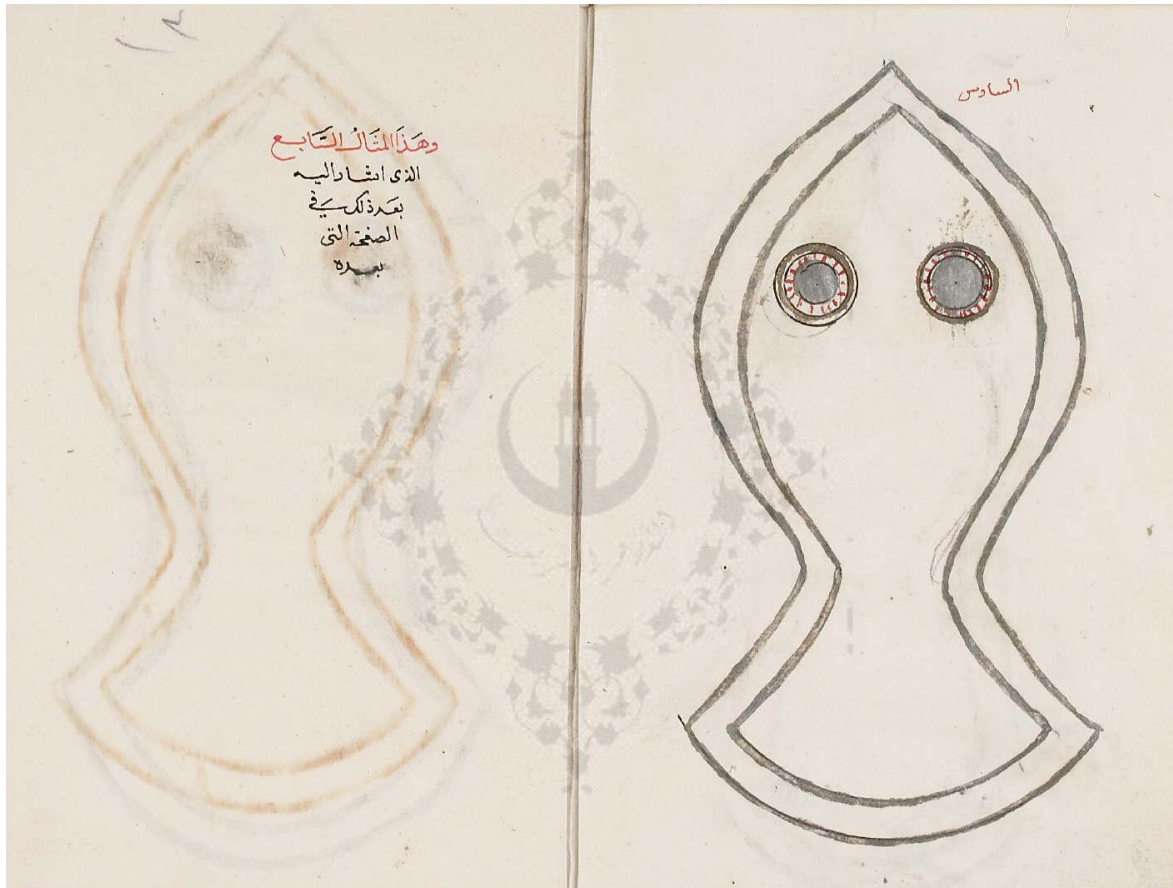 السادس
وهَذَا المثَالُ السَّابع
الذى اشار اليه
بعد ذلك في
الصفحة التى
بعده